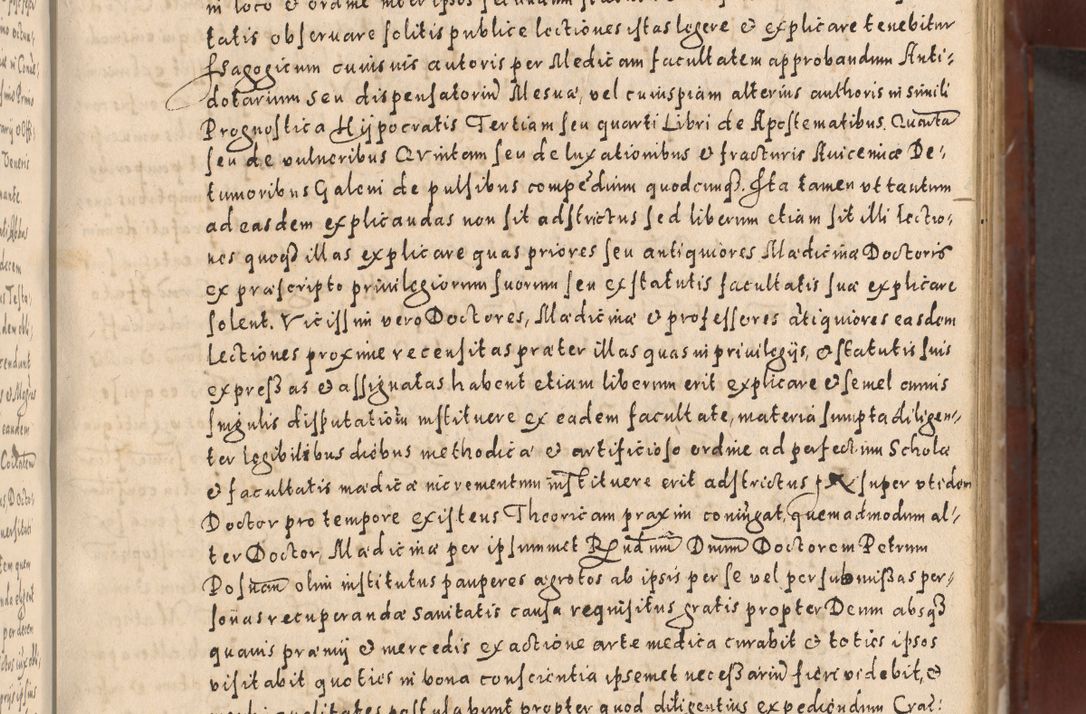 in loco et ordine inter ipsos
tatis observare solitis publice lectiones istas legere et explicare tenebitur
Isagogicum cuiusvis autoris per Medicam facultatem approbandum Anti-
dotarium seu dispensatoriũ Mesuæ, vel cuiuspiam alterius authoris in simili
Prognostica Hÿpocratis Tertiam seu quarti Libri de Apostematibus. Quartã
seu de vulneribus Qvintam seu de luxationibus et fracturis Avicennæ De-
tumoribus Galeni de pulsibus compẽdium quodcunqȝ. Ista tamen ut tantum
ad easdem explicandas non sit adstrictus sed liberum etiam sit illi lectio-
nes quoqȝ illas explicare quas priores seu antiquiores Mædicinæ Doctoris
ex præscripto privilegiorum suorum seu ex statutis facultatis suæ explicare
solent. Vicissim vero Doctores, Mædicinæ et professores ãtiquiores easdem
Lectiones proxime recensitas præter illas quas in privilegijs, et statutis suis
expressas et assignatas habent etiam liberum erit explicare et semel annis
singulis disputationẽ instituere ex eadem facultate, materiã sumpta diligen-
ter legibilibus diebus methodica et artificioso ordine ad perfectum Scholæ
et facultatis mædicæ incrementum instituere erit adstrictus super ut idem
Doctor pro tempore existens Theoricam praxim coniũgat, quemadmodum al-
ter Doctor, Mædicinæ per ipsummet Rñdum Dnum Doctorem Petrum
Posnañ olim institutus pauperes ægrotos ab ipsis per se vel per submissas per-
sonas recuperandæ sanitatis causa requisitus gratis propter Deum absqȝ
quavis præmij et mercedis exactione arte medica curabit et toties ipsos
visitabit quoties in bona conscientia ipsemet necessariũ fieri videbit, et
qualitates postulabunt propter quod diligentius expediendum